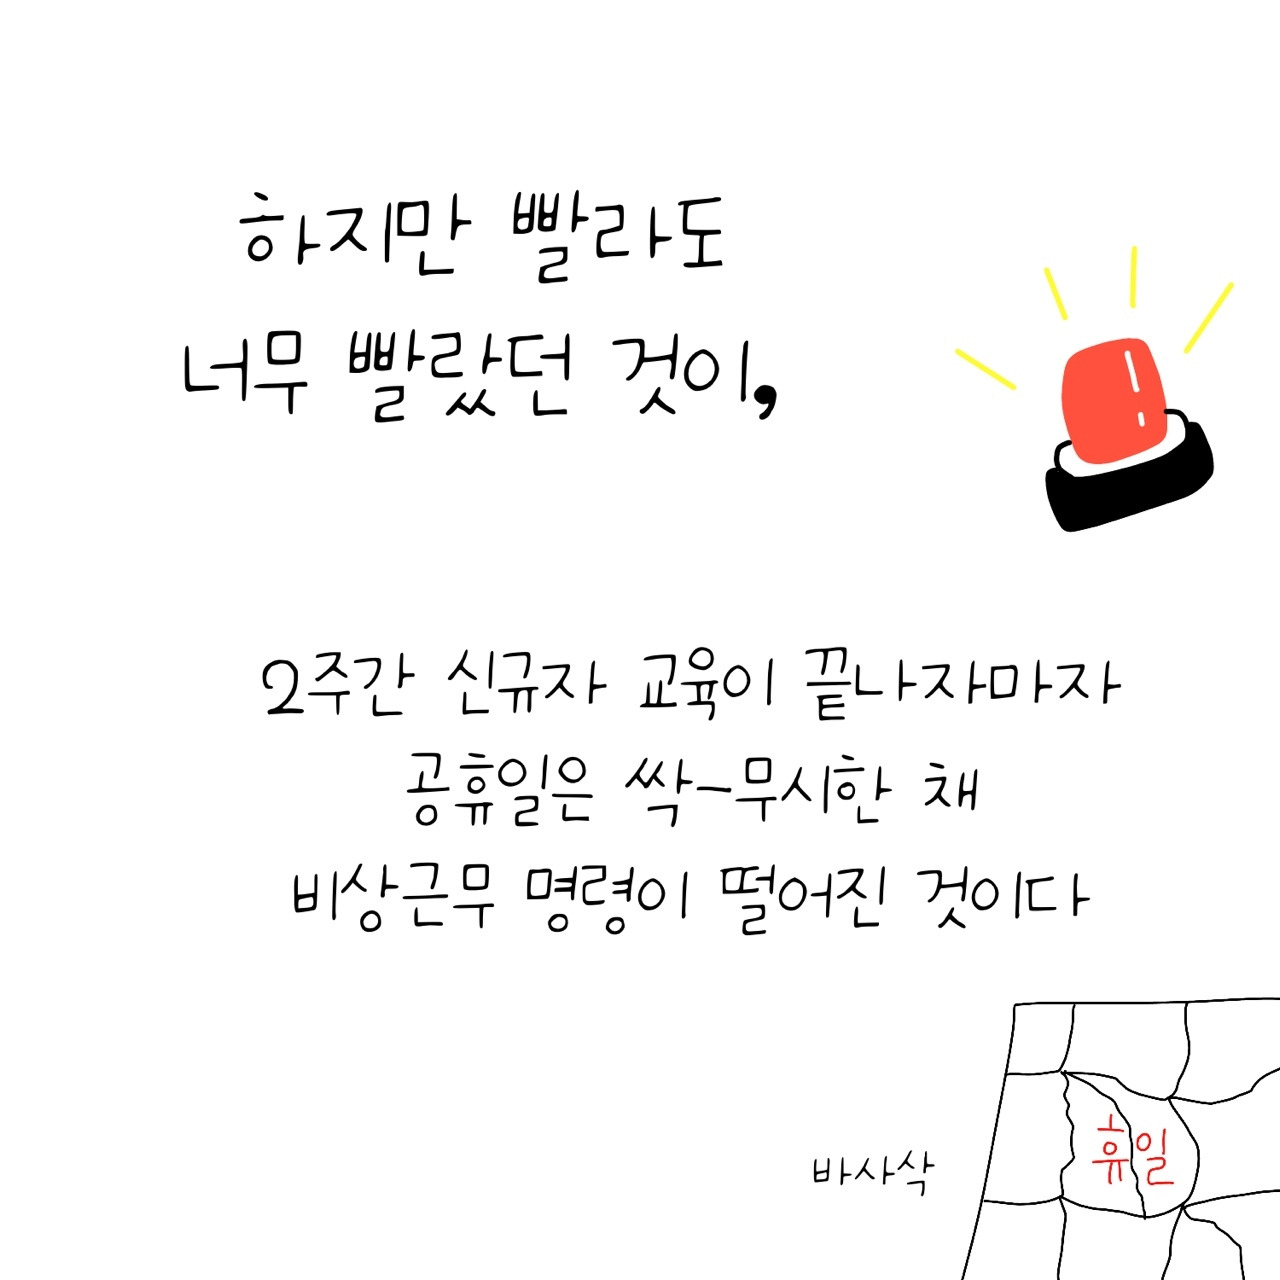 하지만 빨라도
너무 빨랐던 것이,
2주간 신규자 교육이 끝나자마자
공휴일은 싹-무시한 채
비상근무 명령이 떨어진 것이다
휴일
바사삭